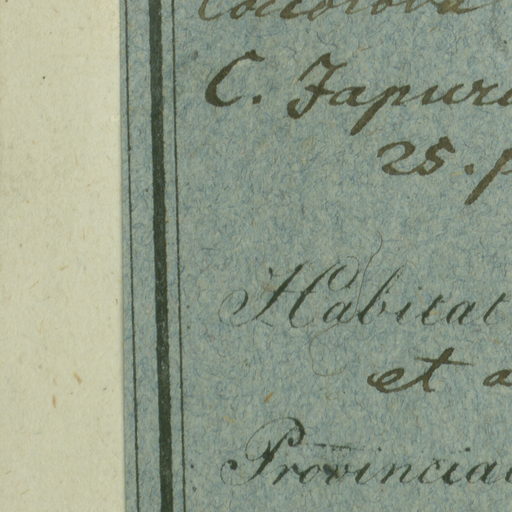 C. Japur
25. p
Habitat
et a
Provincia